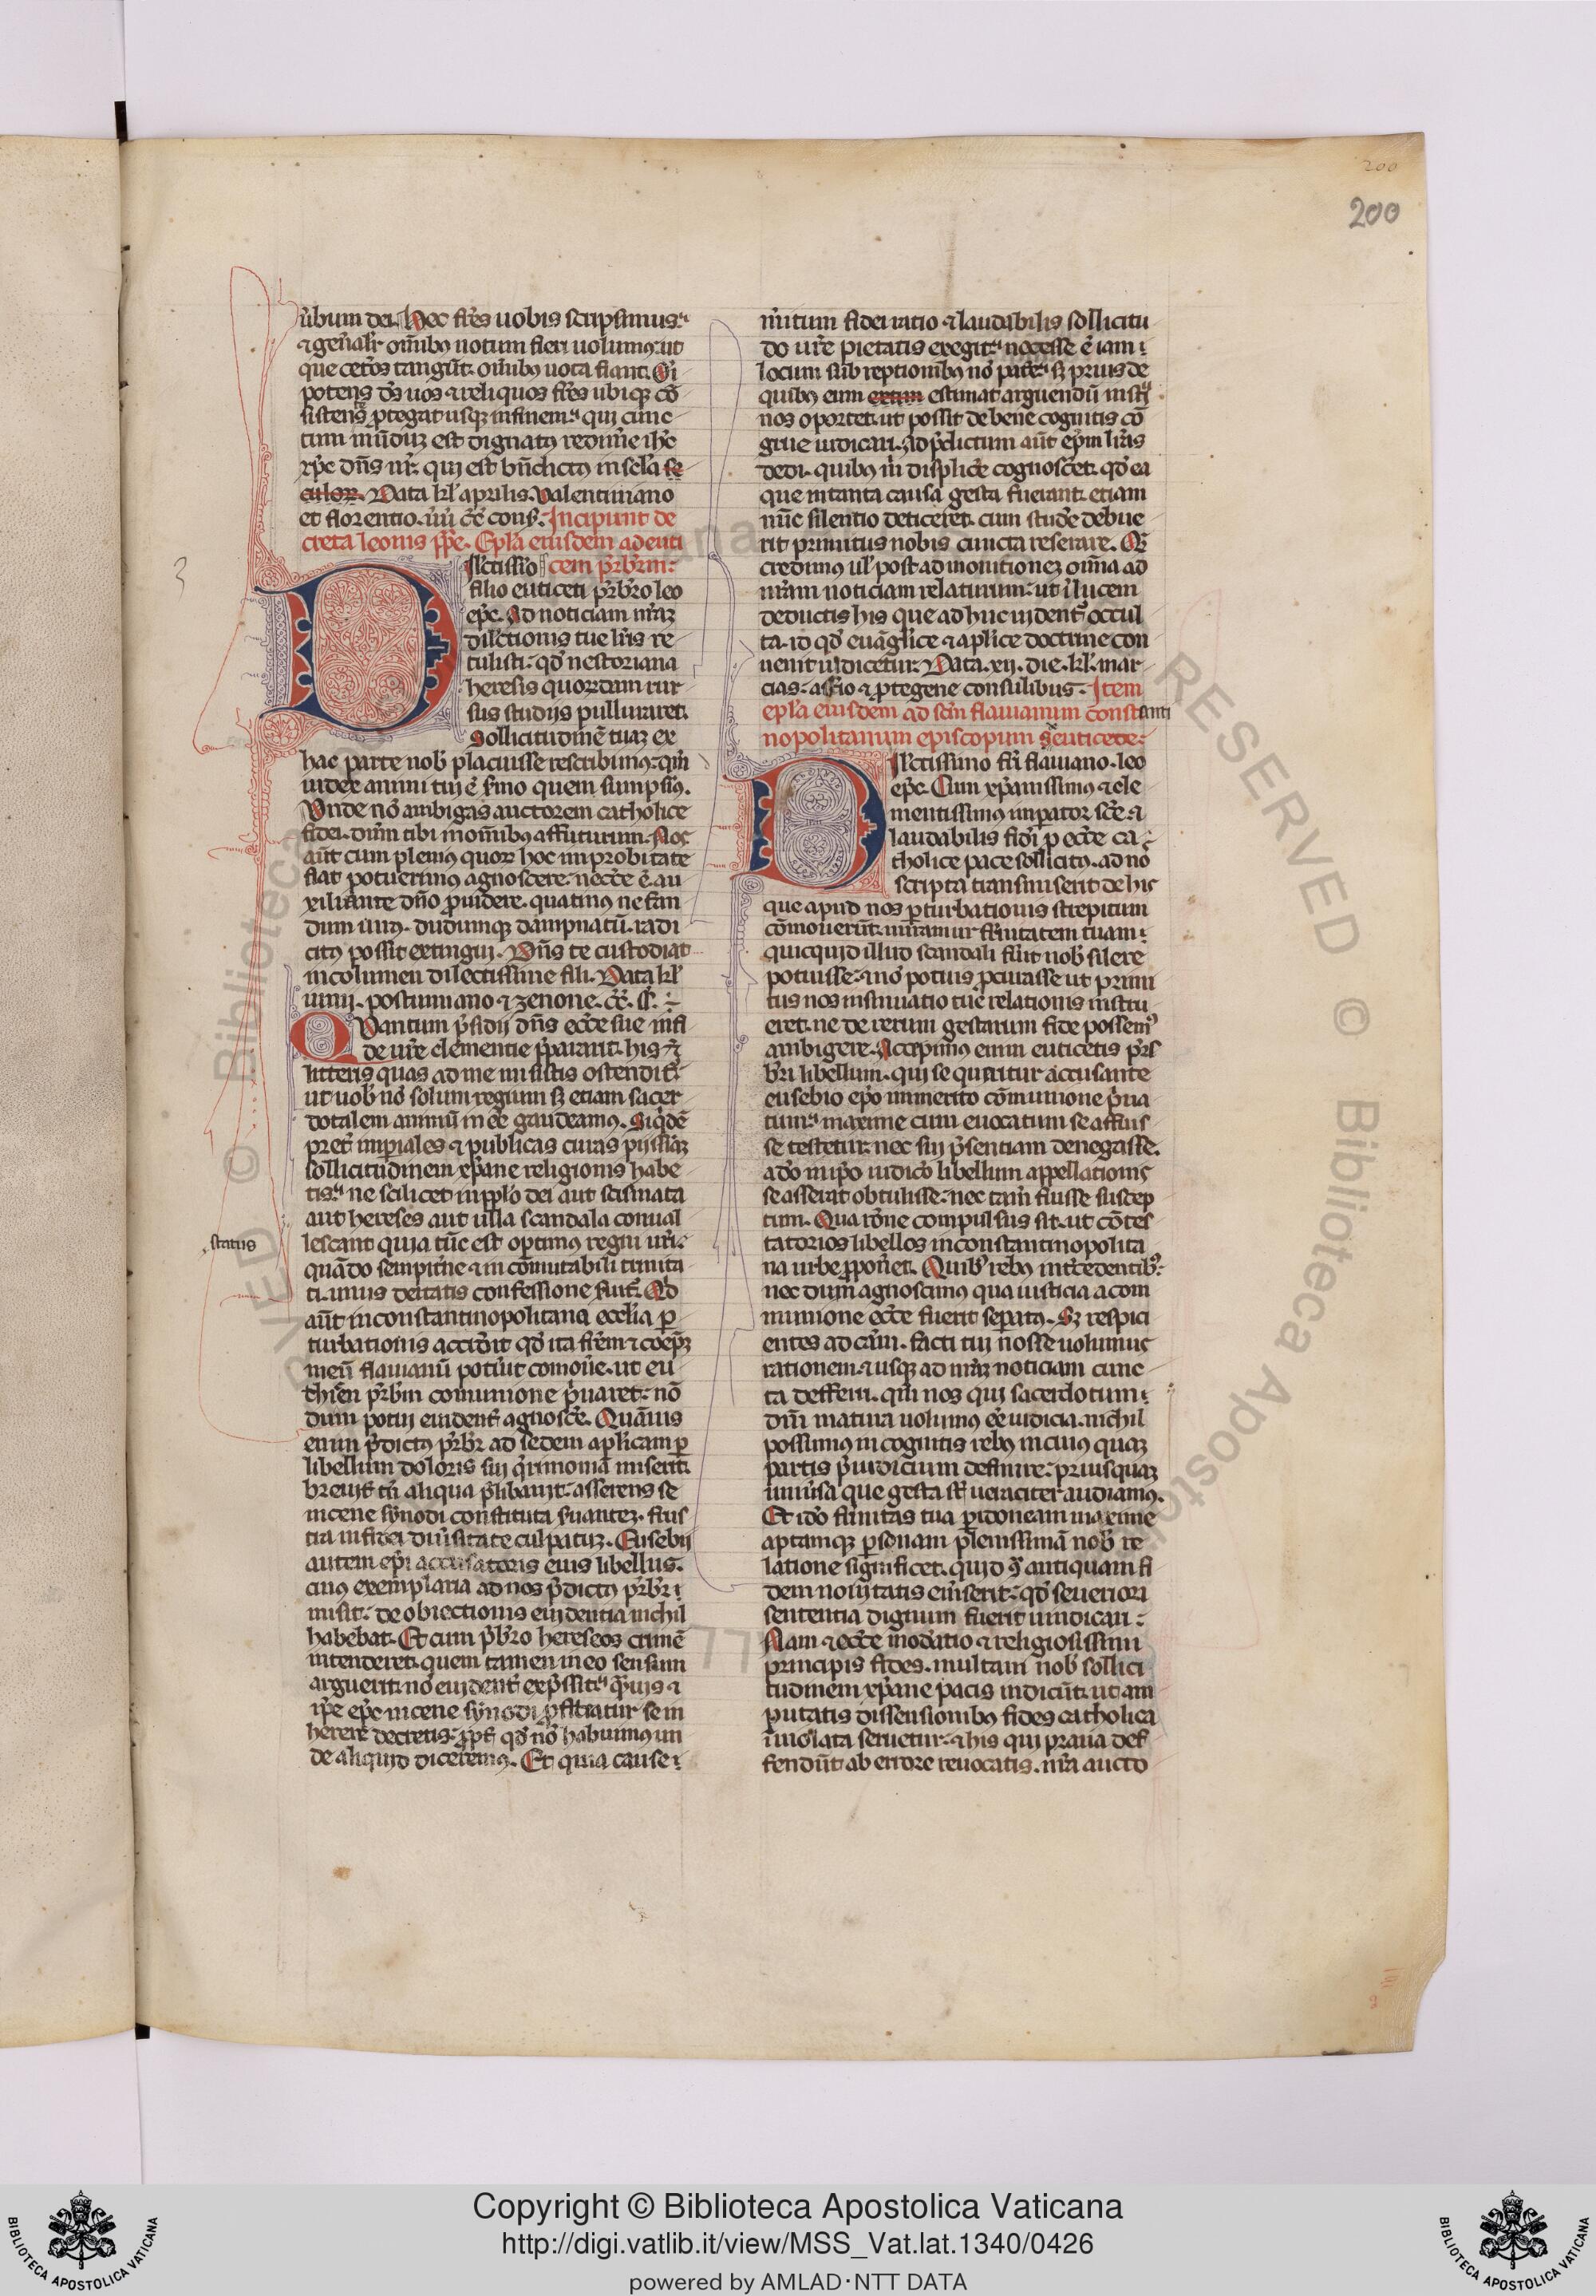 200
200
u̓bum dei. Hec fr̄es uobis scripsimus.
⁊ gen̄alr̄ om̄ibꝰ notum fieri uolumꝰ. ut
que cet̓os tangūt. om̄ibꝰ nota fiant. Om̄i
potens d̄s uos ⁊ reliquos fr̄es ubiqꝫ cō
sistentes ꝓtegat usqꝫ in finem. qui cunc
tum mūdum est dignatꝰ redim̓e ih̄c
xp̄c dn̄s nr̄. qui est bn̄dictus in secl̄a se
culoꝝ. Data kl̓ aprilis. Valentiniano
et florentio. uu̓ c̄c̄ cons̄. Incipiunt de
creta leonis pp̄e. Epl̄a eiusdem ad euti
cem pr̄br̄m.
Dilectissi̓o
filio euticeti pr̄br̄o leo
ep̄c. Ad noticiam nr̄aꝫ
dilectionis tue lr̄is re
tulisti. qd̓ nestoriana
heresis quorūdam rur
sus studijs pulluraret.
Sollicitudinē tuaꝫ ex
hac parte nob̓ placuisse rescribimꝰ. qm̄
iudex animi tui ē sermo quem sumpsimꝰ.
Vnde nō ambigas auctorem catholice
fidei. dn̄m tibi in om̄ibꝰ affuturum. Nos
aūt cum plenius quoꝝ hoc improbitate
fiat potuerimꝰ agnoscere. necc̄e ē. au
xiliante dn̄o ꝓuidere. quatinus nefan
dum uirꝰ. dudumqꝫ dampnatū. radi
citꝰ possit extingui. Dn̄s te custodiat
incolumen dilectissime fili. Data kl̓
iunij. postumiano ⁊ zenone. c̄c̄.
QVantum p̄sidij dn̄s ecc̄e sue in fi
de ur̄e clementie p̄parauit. his ⁊
litteris quas ad me misistis ostendit̄
ut uob̓ nō solum regium sꝫ etiam sacer
dotalem animū inēē gaudeamꝰ. Siqͥdē
pret̓ imp̱iales ⁊ publicas curas pijssi̓aꝫ
sollicitudinem xp̄iane religionis habe
tis. ne scilicet in pp̄lo dei aut scismata
aut hereses aut ulla scandala conual
status
lescant quia tūc est optimus regni ur̄i.
quādo sempit̓ne ⁊ incōmutabili trinita
ti. unius deitatis confessione fuit̄. Qd̓
aūt in constantinopolitana eccl̄ia ꝑ
turbationis accid̓it qd̓ ita fr̄em ⁊ coep̄m
meū flauianū potu̓it comou̓e. ut eu
thicen pr̄brm comunione p̓uaret. nō
dum potui euident̓ agnosc̓e. Quāuis
enim p̄dictꝰ pr̄br̄ ad sedem ap̄licam ꝑ
libellum doloris sui qͥrimoniā miserit.
breuit̓ tn̄ aliqua p̓libauit. asserens se
nicene synodi constituta s̓uanteꝫ. frus
tra in fidei diu̓sitate culpatuꝫ. Eusebij
autem ep̄i accusatoris eius libellus.
cuiꝰ exemplaria ad nos p̄dictꝰ pr̄br̄
misit. de obiectionis euidentia nichil
habebat. Et cum p̄b̄ro hereseos crimē
intenderet. quem tamen in eo sensum
argueret. nō euident̓ exp̄ssit. qͣuis ⁊
ip̄e ep̄c nicene synodi ꝓfiteatur se in
herere decretis. ꝓpt̓ qd̓ nō habuimꝰ un
de aliquid diceremꝰ. Et quia cause
m̓itum fidei ratio ⁊ laudabilis sollicitu
do ur̄e pietatis exegit. necesse ē iam
locum subreptionibꝰ nō pat̓e. sꝫ prius de
quibꝰ eum etiam estimat arguendū inst̓i
nos oportet. ut possit de bene cognitis cō
grue iudicari. Ad p̄dictum aūt ep̄m lr̄as
dedi. quibꝰ m̓ displic̓e cognosceret. qd̓ ea
que in tanta causa gesta fuerant. etiam
nūc silentio deticeret. cum stud̓e debue
rit primitus nobis cuncta reserare. Qē
credimus ul̓ post admonitioneꝫ om̄a ad
nr̄am noticiam relaturum. ut ī lucem
deductis his que adhuc uident̓ occul
ta. id qd̓ euāglice ⁊ ap̄lice doctrine con
uenit iudicetur. Data. xij. die. kl̓. mar
cias. asterio ⁊ ꝓtegene consulibus. Item
epl̄a eiusdem ad scm̄ flauianum constanti
nopolitanum episcopum de euticete.
Dilectissimo fr̄i flauiano. leo
ep̄c. Cum xp̄ianissimꝰ ⁊ cle
mentissimus imꝑator sc̄e ⁊
laudabilis fid̓i ꝑ ecc̄e ca
tholice pace sollicitꝰ. ad nō
scripta transmiserit de his
que apud nos ꝑturbationis strepitum
cōmouerūt. miramur fr̄nitatem tuam
quicquid illud scandali fuit nob̓ silere
potuisse. ⁊ nō potius ꝓcurasse ut primi
tus nos insinuatio tue relationis instru
eret. ne de rerum gestarum fide possemꝰ
ambigere. Accepimus enim euticetis pr̄s
br̄i libellum. qui se queritur accusante
eusebio ep̄o immerito cōmunione p̓ua
tum. maxime cum euocatum se affuis
se testetur. nec sui p̄sentiam denegasse.
ado̓ in ip̄o iudic̓o libellum appellationis
se asserat obtulisse. nec tam̄ fuisse suscep
tum. Qua rōne compulsus sit. ut cōtes
tatorios libellos in constantinopolita
na urbe ꝓpon̄et. Quibꝰ rebꝰ int̓cedentibꝰ.
nec dum agnoscimꝰ qua iusticia a com
munione ecc̄e fuerit seꝑatꝰ. Sꝫ respici
entes ad cām. facti tui nosse uolumus
rationem. ⁊ usqꝫ ad nr̄aꝫ noticiam cunc
ta defferri. qm̄ nos qui sacerdotum
dn̄i matura uolumꝰ ēē iudicia. nichil
possumꝰ incognitis rebꝰ in cuiꝰ quaꝫ
partis p̄iudicium definire. priusquaꝫ
uniu̓sa que gesta sūt ueraciter audiamꝰ.
Et ido̓ fr̄nitas tua ꝑ idoneam maxime
aptamqꝫ ꝑsonam plenissimā nob̓ re
latione significet. quid ꝯͣ antiquam fi
dem nouitatis em̓serit. qd̓ seueriori
sententia dignum fuerit uindicari.
Nam ⁊ ecc̄e mod̓atio ⁊ religiosissimi
principis fides. multam nob̓ sollici
tudinem xp̄iane pacis indicūt. ut am
putatis dissensionibꝰ fides catholica
inuiolata seruetur. ⁊ his qui praua def
fendūt ab errore reuocatis. nr̄a aucto
Copyright © Biblioteca Apostolica Vaticana
http://digi.vatlib.it/view/MSS_Vat.lat.1340/0426
powered by AMLAD·NTT DATA
BIBLIOTECA APOSTOLICA VATICANA
BIBLIOTECA APOSTOLICA VATICANA